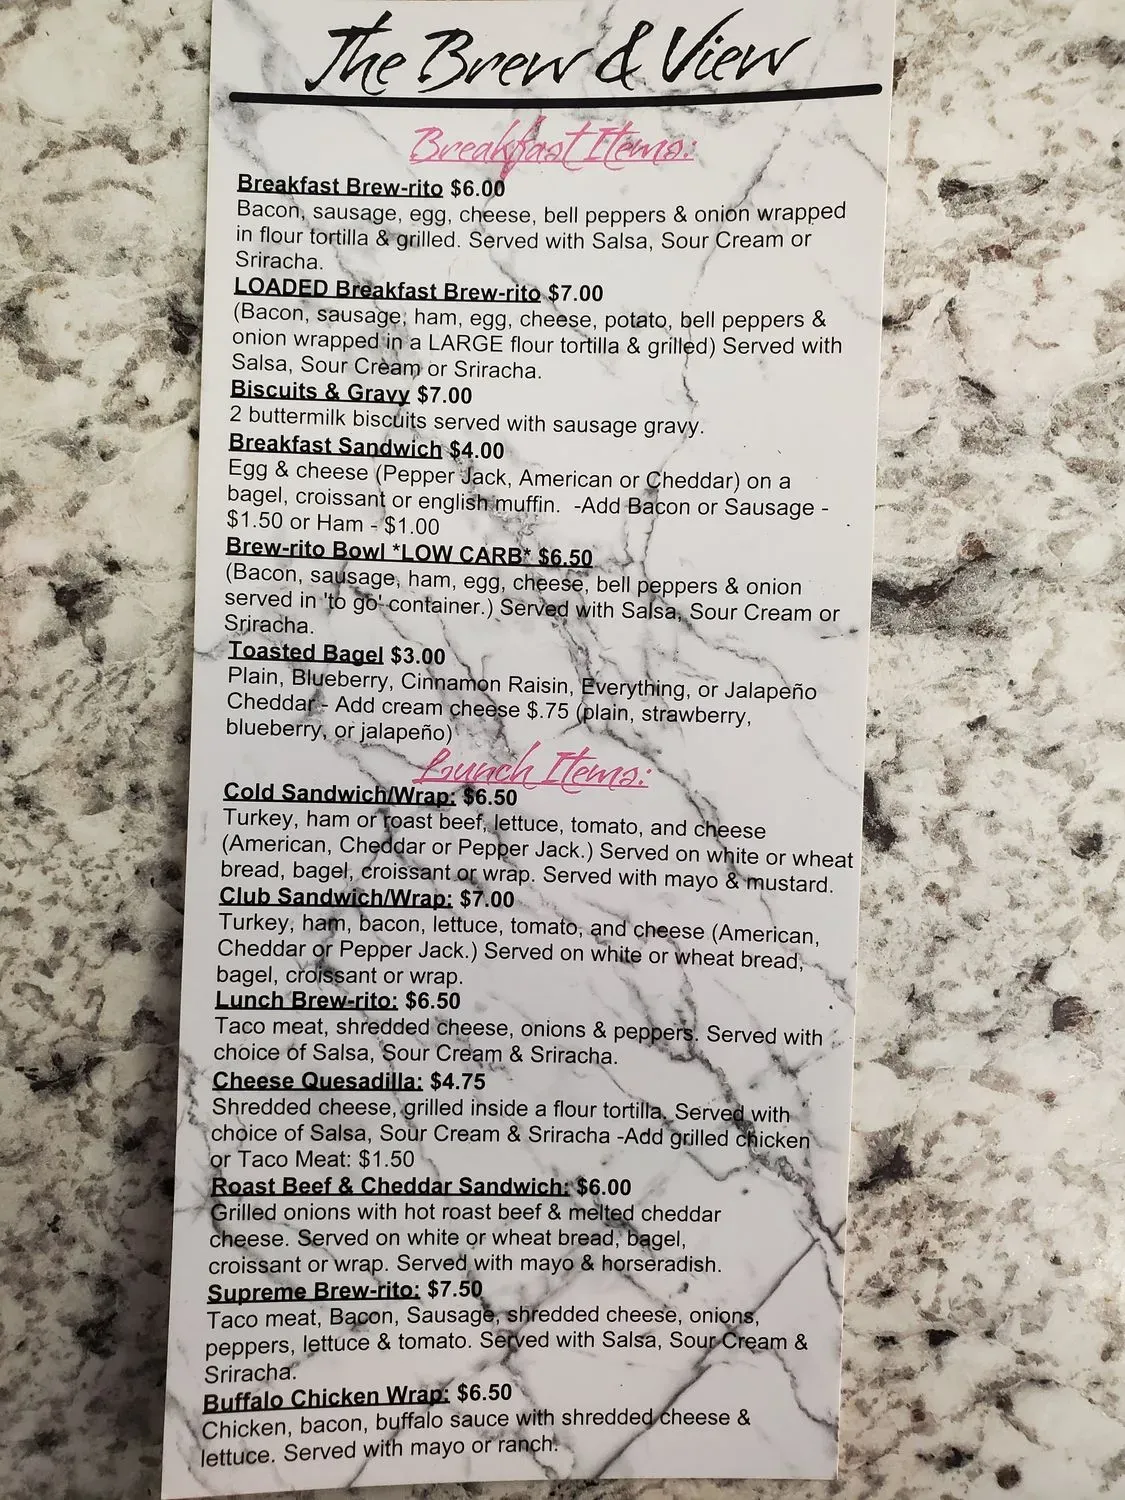 The Brew & View
Breakfast Items:
Breakfast Brew-rito $6.00
Bacon, sausage, egg, cheese, bell peppers & onion wrapped
in flour tortilla & grilled. Served with Salsa, Sour Cream or
Sriracha.
LOADED Breakfast Brew-rito $7.00
(Bacon, sausage, ham, egg, cheese, potato, bell peppers &
onion wrapped in a LARGE flour tortilla & grilled) Served with
Salsa, Sour Cream or Sriracha.
Biscuits & Gravy $7.00
2 buttermilk biscuits served with sausage gravy.
Breakfast Sandwich $4.00
Egg & cheese (Pepper Jack, American or Cheddar) on a
bagel, croissant or english muffin. -Add Bacon or Sausage -
$1.50 or Ham - $1.00
Brew-rito Bowl *LOW CARB* $6.50
(Bacon, sausage, ham, egg, cheese, bell peppers & onion
served in 'to go' container.) Served with Salsa, Sour Cream or
Sriracha.
Toasted Bagel $3.00
Plain, Blueberry, Cinnamon Raisin, Everything, or Jalapeño
Cheddar - Add cream cheese $.75 (plain, strawberry,
blueberry, or jalapeño)
Lunch Items:
Cold Sandwich/Wrap: $6.50
Turkey, ham or roast beef, lettuce, tomato, and cheese
(American, Cheddar or Pepper Jack.) Served on white or wheat
bread, bagel, croissant or wrap. Served with mayo & mustard.
Club Sandwich/Wrap: $7.00
Turkey, ham, bacon, lettuce, tomato, and cheese (American,
Cheddar or Pepper Jack.) Served on white or wheat bread,
bagel, croissant or wrap.
Lunch Brew-rito: $6.50
Taco meat, shredded cheese, onions & peppers. Served with
choice of Salsa, Sour Cream & Sriracha.
Cheese Quesadilla: $4.75
Shredded cheese, grilled inside a flour tortilla. Served with
choice of Salsa, Sour Cream & Sriracha -Add grilled chicken
or Taco Meat: $1.50
Roast Beef & Cheddar Sandwich: $6.00
Grilled onions with hot roast beef & melted cheddar
cheese. Served on white or wheat bread, bagel,
croissant or wrap. Served with mayo & horseradish.
Supreme Brew-rito: $7.50
Taco meat, Bacon, Sausage, shredded cheese, onions,
peppers, lettuce & tomato. Served with Salsa, Sour Cream &
Sriracha.
Buffalo Chicken Wrap: $6.50
Chicken, bacon, buffalo sauce with shredded cheese &
lettuce. Served with mayo or ranch.